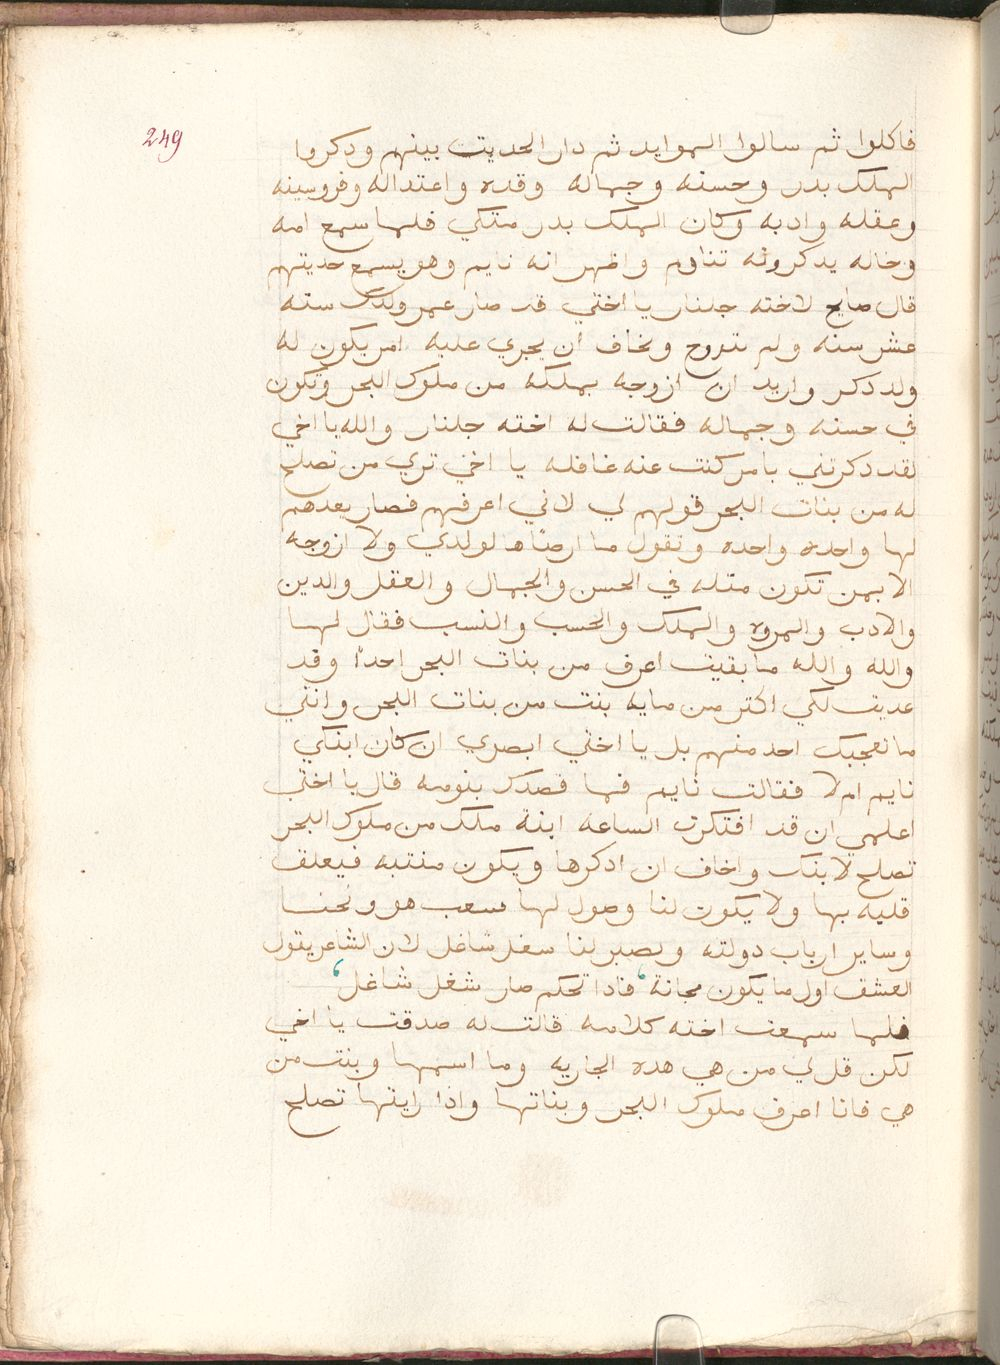 249
فاكلوا ثم سالوا الموايد ثم دار الحديت بينهم ودكروا
الملك بدر وحسنه وجماله وقده واعتداله وفروسينه
وعقله وادبه وكان الملك بدر متكي فلما سمع امه
وخاله يدكرونه تناوم واظهر انه نايم وهو يسمع حديتهم
قال صايح لاخته جلنار يا اختي قد صار عمر ولدك سته
عشر سنه ولم تتروج ونخاف ان يجري عليه امر يكون له
ولد دكر واريد ان ازوجه بملكه من ملوك البحر وتكون
في حسنه وجماله فقالت له اخته جلنار والله يا اخي
لقد دكرتني بامر كنت عنه غافله يا اخي تري من تصلح
له من بنات البحر قولهم لي لاني اعرفهم فصار يعدهم
لها واحده واحده وتقول ما ارضاها لولدي ولا ازوجه
الا بمن تكون متله في الحسن والجمال والعقل والدين
والادب والمروه والملك والحسب والنسب فقال لها
والله والله ما بقيت اعرف من بنات البحر احدا وقد
عديت لكي اكتر من مايه بنت من بنات البحر وانتي
ما تعجبك احد منهم بل يا اختي ابصري ان كان ابنكي
نايم ام لا فقالت نايم فما قصدك بنومه قال يا اختي
اعلمي ان قد افتكرت الساعه ابنة ملك من ملوك البحر
تصلح لابنك واخاف ان ادكرها ويكون منتبه فيعلق
قلبه بها ولا يكون لنا وصول لها سعب هو ونحنا
وساير ارباب دولته ويصير لنا سغل شاغل لان الشاعر يقول
العشق اول ما يكون مجانة، فادا تحكم صار شغل شاغل،
فلما سمعت اخته كلامه قالت له صدقت يا اخي
لكن قل لي من هي هده الجاريه وما اسمها وبنت من
هي فانا اعرف ملوك البحر وبناتها واذا رايتها تصلح